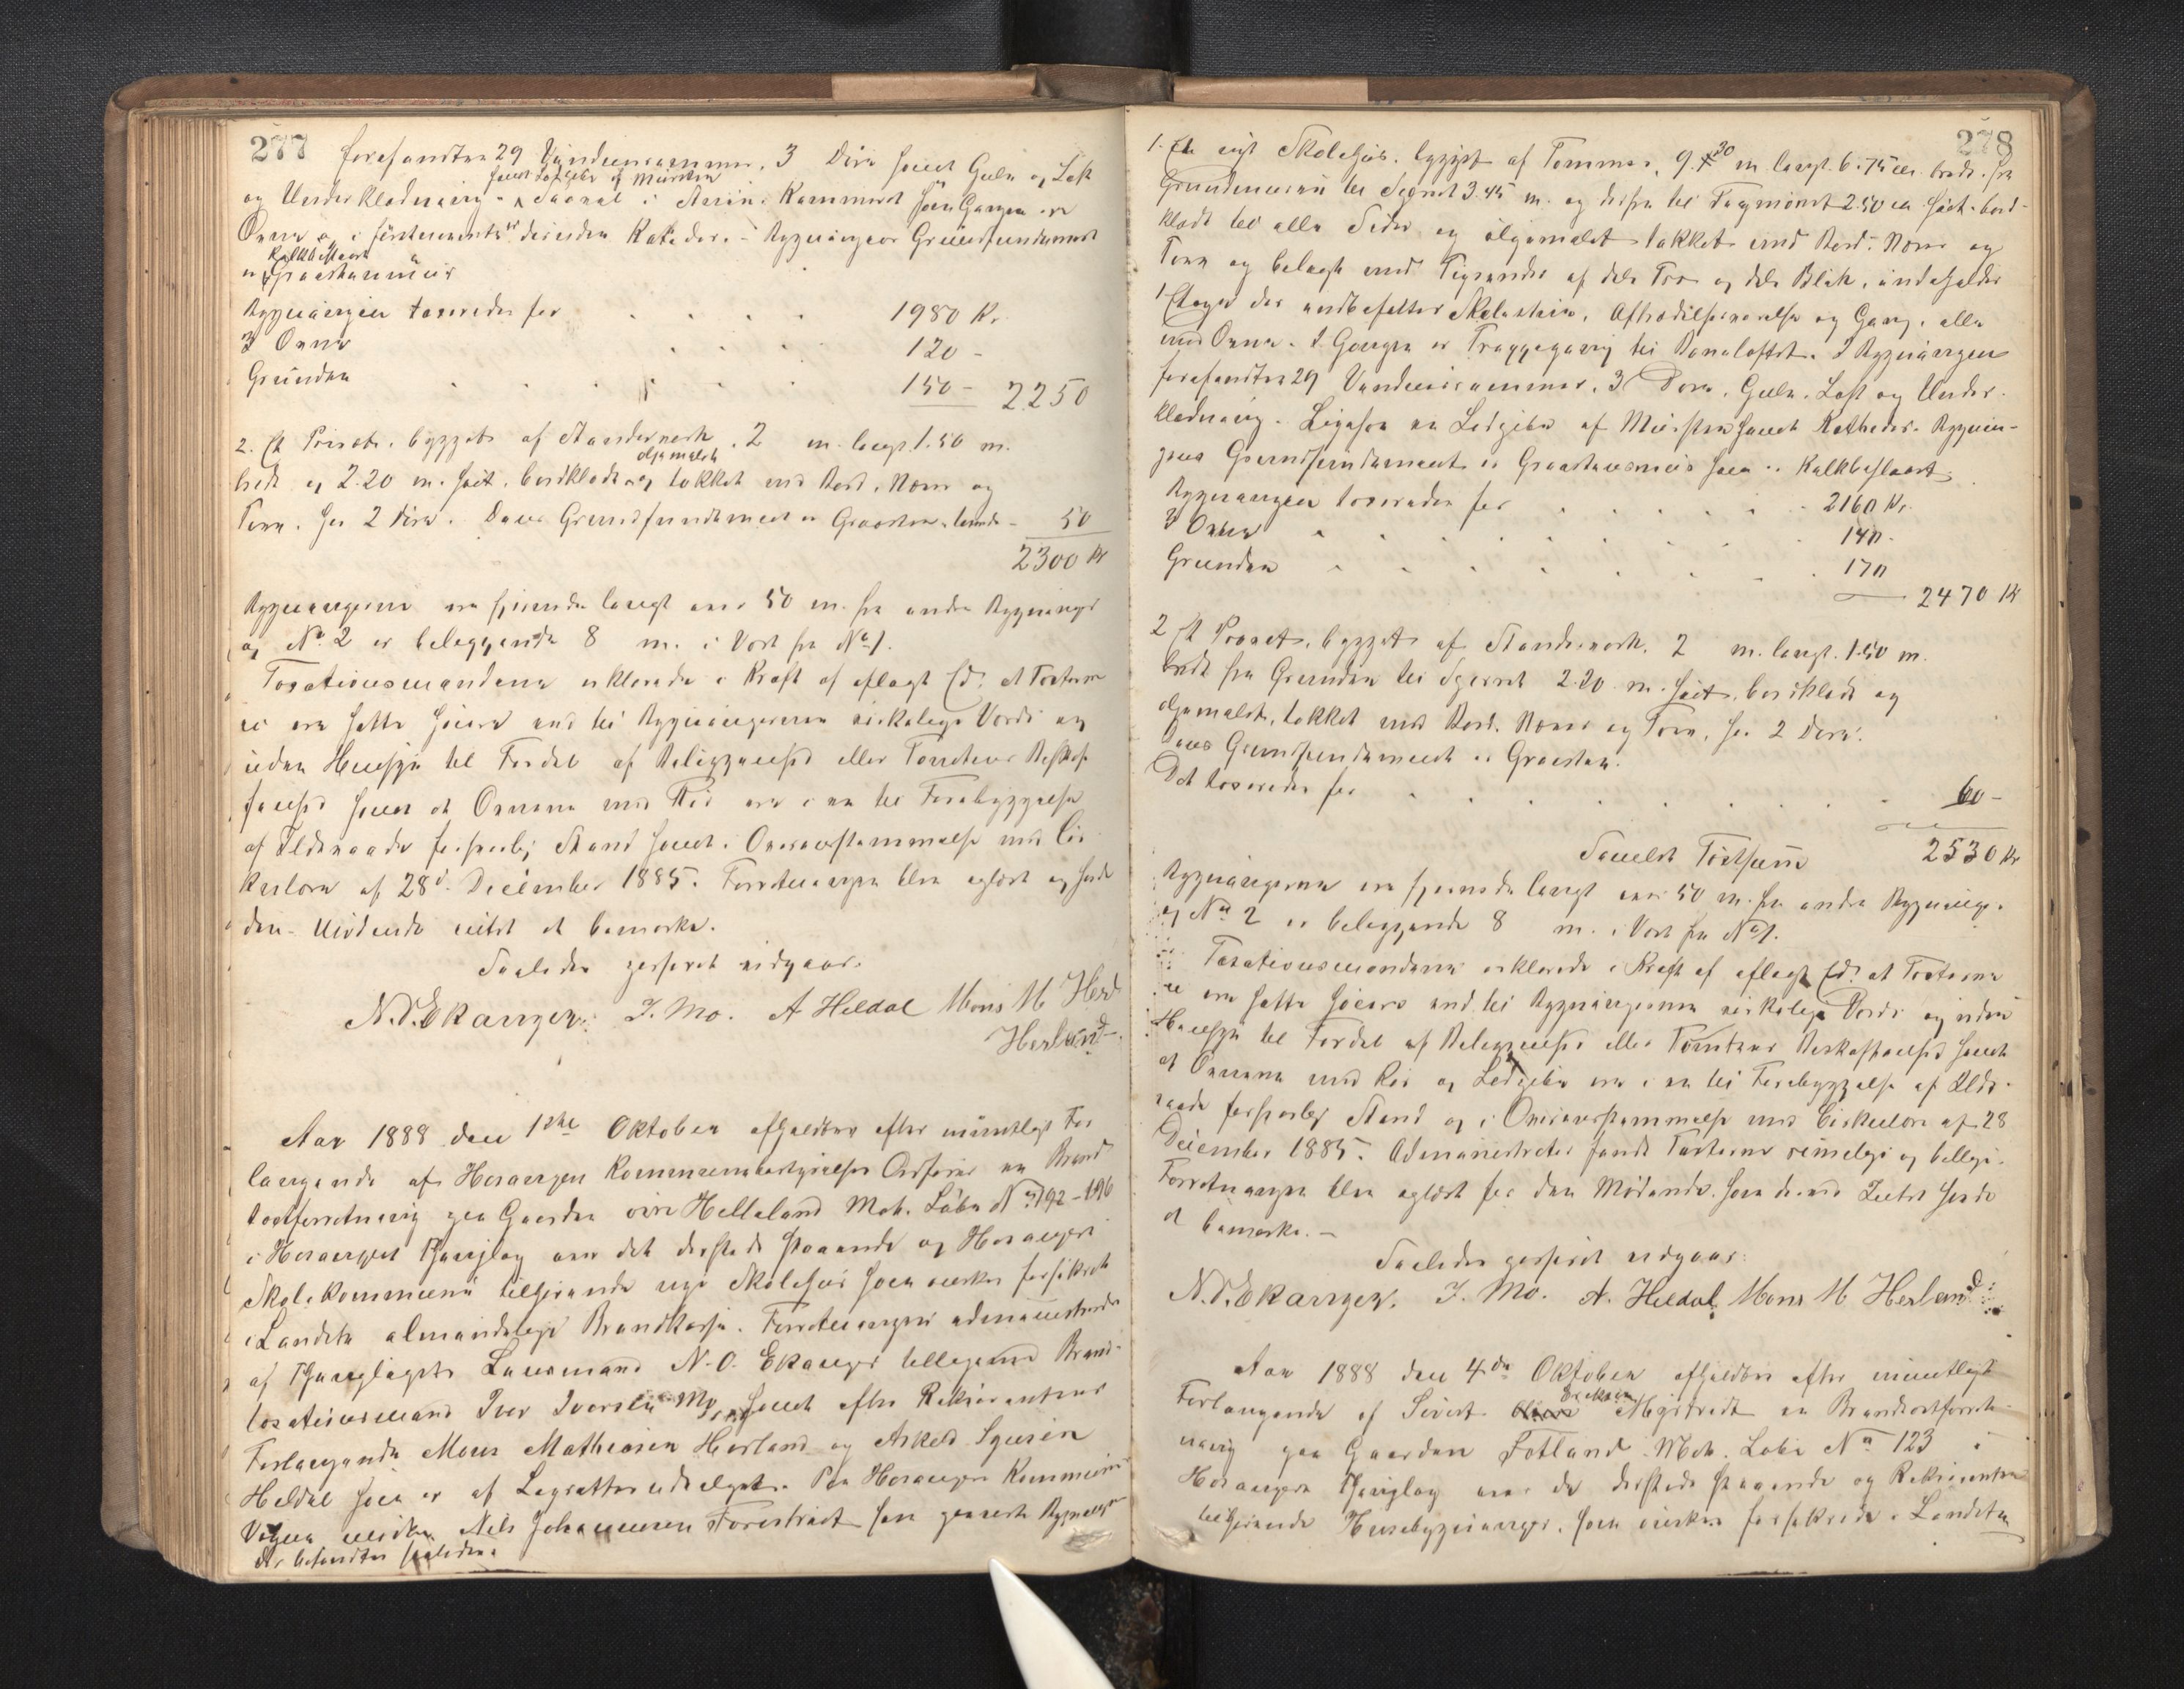 277
forefandtes 29 Vinduesrammer, 3 Döre samt Gulv og Loft
samt Ledpibe af Mursten
og Underklædning. Saavel i Stuen, Kammeret som Gangen er
Ovne og i förstnævnte desuden Katheder. Bygningens Grundfundament
kalkbeslaaet
er Graastensmuur
Bygningen taxeredes for 1980 Kr.
3 Ovne 120 -
Grunden 150 - 2250
2. Et Privet, bygget af Standerværk, 2 m. langt 1.50 m.
oljemalet
bredt og 2.20 m. höit, bordklædt og tækket med Bord, Næver og
Törv. Har 2 Döre. Dens Grundfundament er Graasten, taxeredes 50
2300 Kr
Bygningerne ere fjernede langt over 50 m. fra andre Bygninger
og No 2 er beliggende 8 m. i Vest fra No 1.
Taxationsmændene erklærede i Kraft af aflagt Ed, at Taxterne
ei ere satte höiere end til Bygningernes virkelige Værdi og
uden Hensyn til Fordel af Beliggenhed eller Tomtens Beskaf-
fenhed samt at Ovnene med Rör ere i en til Forebyggelse
af Ildsvaade forsvarlig Stand samt i Overensstemmelse med Cir-
kulære af 28de December 1885. Forretningen blev oplæst og havde
den Mödende intet at bemærke.
Saaledes passeret vidgaar.
N. O. Ekanger. I. Mo. A Heldal Mons M Herl
Herland
Aar 1888 den 1ste Oktober afholdtes efter mundtligt For-
langende af Hosanger Kommunebestyrelses Ordförer en Brand-
taxtforretning paa Gaarden övre Helleland Mat. Löbe No 192-196
i Hosanger Thinglag over det dersteds staaende og Hosanger
Skolekommune tilhörende nye Skolehus som önskes forsikret
i Landets almindelige Brandkasse. Forretningen administreredes
af Thinglagets Lensmand N. O. Ekanger tilligemed Brand-
taxationsmand Iver Iversen Mo, samt efter Rekvirentens
Forlangende Mons Mathiasen Herland og Askild Sjursen
Heldal som er af Lagretten udvalgte. Paa Hosanger Kommunes
Vegne mödte Nels Johannesen Tveitereit som paaviste Bygningen
der befandtes saaledes:
278
1. Et nyt Skolehus, bygget af Tömmer, 9.30 m. langt 6.75 m. bredt, fra
Grundmuren til Skjæget 3.45 m. og derfra til Tagmönet 2.50 m. höit, bord-
klædt til alle Sider og oljemalet, tækket med Bord, Næver og
Törv og belagt med Tagrender af dels Træ og dels Blik, indeholder
1 Etage der indbefatter Skolestue, Aftrædelsesværelse og Gang, alle
med Ovne. I Gangen er Trappegang til Bonaloftet. I Bygningen
forefandtes 29 Vinduesrammer, 3 Döre, Gulv, Loft og Under-
klædning. Ligesom en Ledpibe af Mursten samt Katheder. Bygnin-
gens Grundfundament er Graastensmur som er kalkbeslaaet.
Bygningen taxeredes for 2160 Kr.
3 Ovne 140 -
Grunden 170
2470 Kr
2 Et Privet, bygget af Standerværk, 2 m. langt, 1.50 m.
bredt fra Grunden til Skjæget 2.20 m. höit, bordklædt og
oljemalet, tækket med Bord, Næver og Törv, har 2 Döre.
Dens Grundfundament er Graasten.
Det taxeredes for 60 -
Samlet Taxtsum 2530 Kr
Bygningerne ere fjernede langt over 50 m. fra andre Bygninger
og No 2 er beliggende 8 m. i Vest fra No 1.
Taxationsmændene erklærede i Kraft af aflagt Ed, at Taxterne
ei ere satte höiere end til Bygningernes virkelige Værdi og uden
Hensyn til Fordel af Beliggenhed eller Tomtens Beskaffenhed samt
at Ovnene med Rör og Ledpibe ere i en til Forebyggelse af Ilds-
vaade forsvarlig Stand og i Overensstemmelse med Cirkulære af 28
December 1885. Administrator fandt Taxterne rimelige og billige.
Forretningen blev oplæst for den Mödende, som derved Intet havde
at bemærke. -
Saaledes passeret vidgaar:
N. O. Ekanger. I. Mo. A. Heldal, Mons M Herland
Aar 1888 den 4de Oktober afholdtes efter mundtligt
Eriksen
Forlangende af Sivert Mjøstredt en Brandtaxtforret-
ning paa Gaarden Fotland Mat. Löbe No 123 i
Hosanger Thinglag over de dersteds staaende og Rekvirenten
tilhörende Husebygninger, som önskes forsikrede i Landets